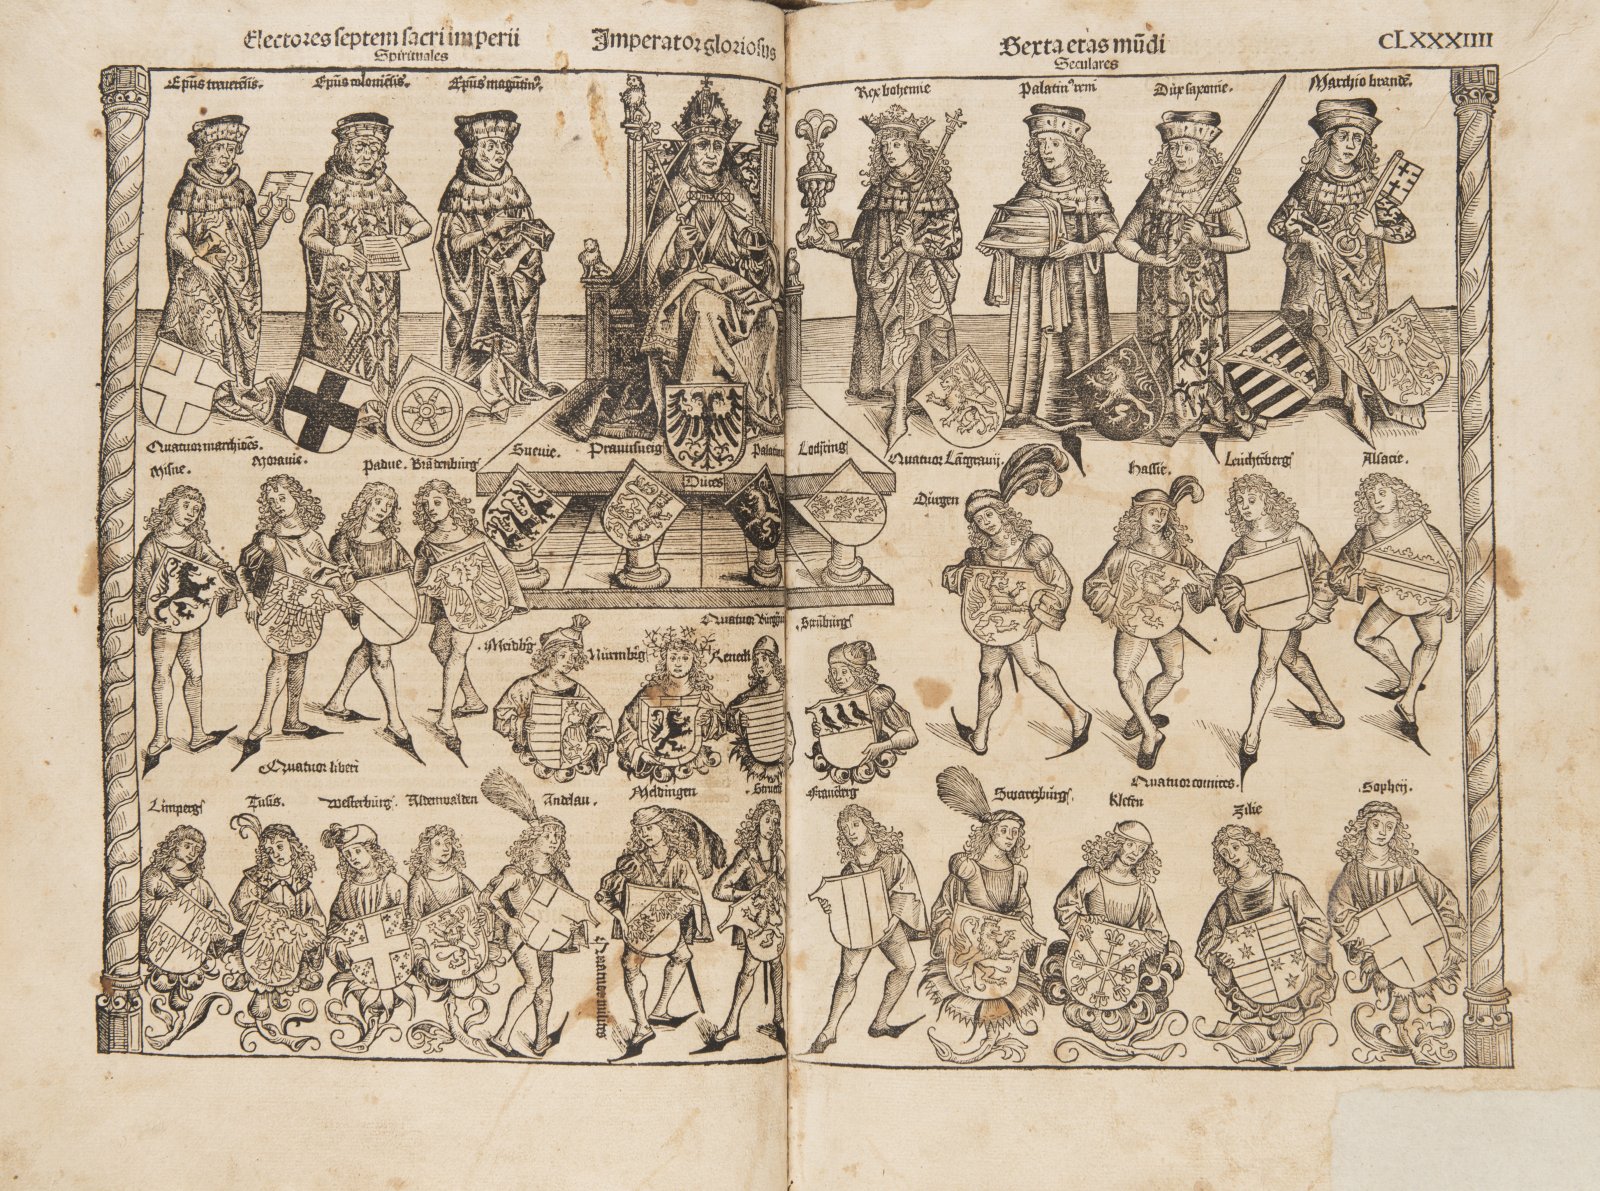 Electores septem sacri imperii
Spirituales
Imperator gloriosus
Sexta etas mũdi
Seculares
CLXXXIIII
Ep̃us treuerẽsis.
Ep̃us coloniẽsis.
Ep̃us magũtin⁹.
Rex bohemie
Palatin⁹ reni
Dux saxonie.
Marchio brandẽ.
Quatuor marchiões.
Misne.
Morauie.
Padue.
Brãdenburg
Sueuie.
Praunsueig
Palatinus
Lothring
Duces
Quatuor Lãtgrauij.
Durgen
Hassie.
Leuchtẽberg
Alsacie.
Quatuor Burgg
Meidbg̃
Nũrmbẽg
Reneck
Strũburg
Quatuor liberi
Limperg
Tusis.
Westerburg.
Aldenwalden
Andelau.
Meldingen
Strueck
Fraueberg
Quatuor milites
Quatuor comites.
Swartzburg.
Klefen
Zilie
Sophey.